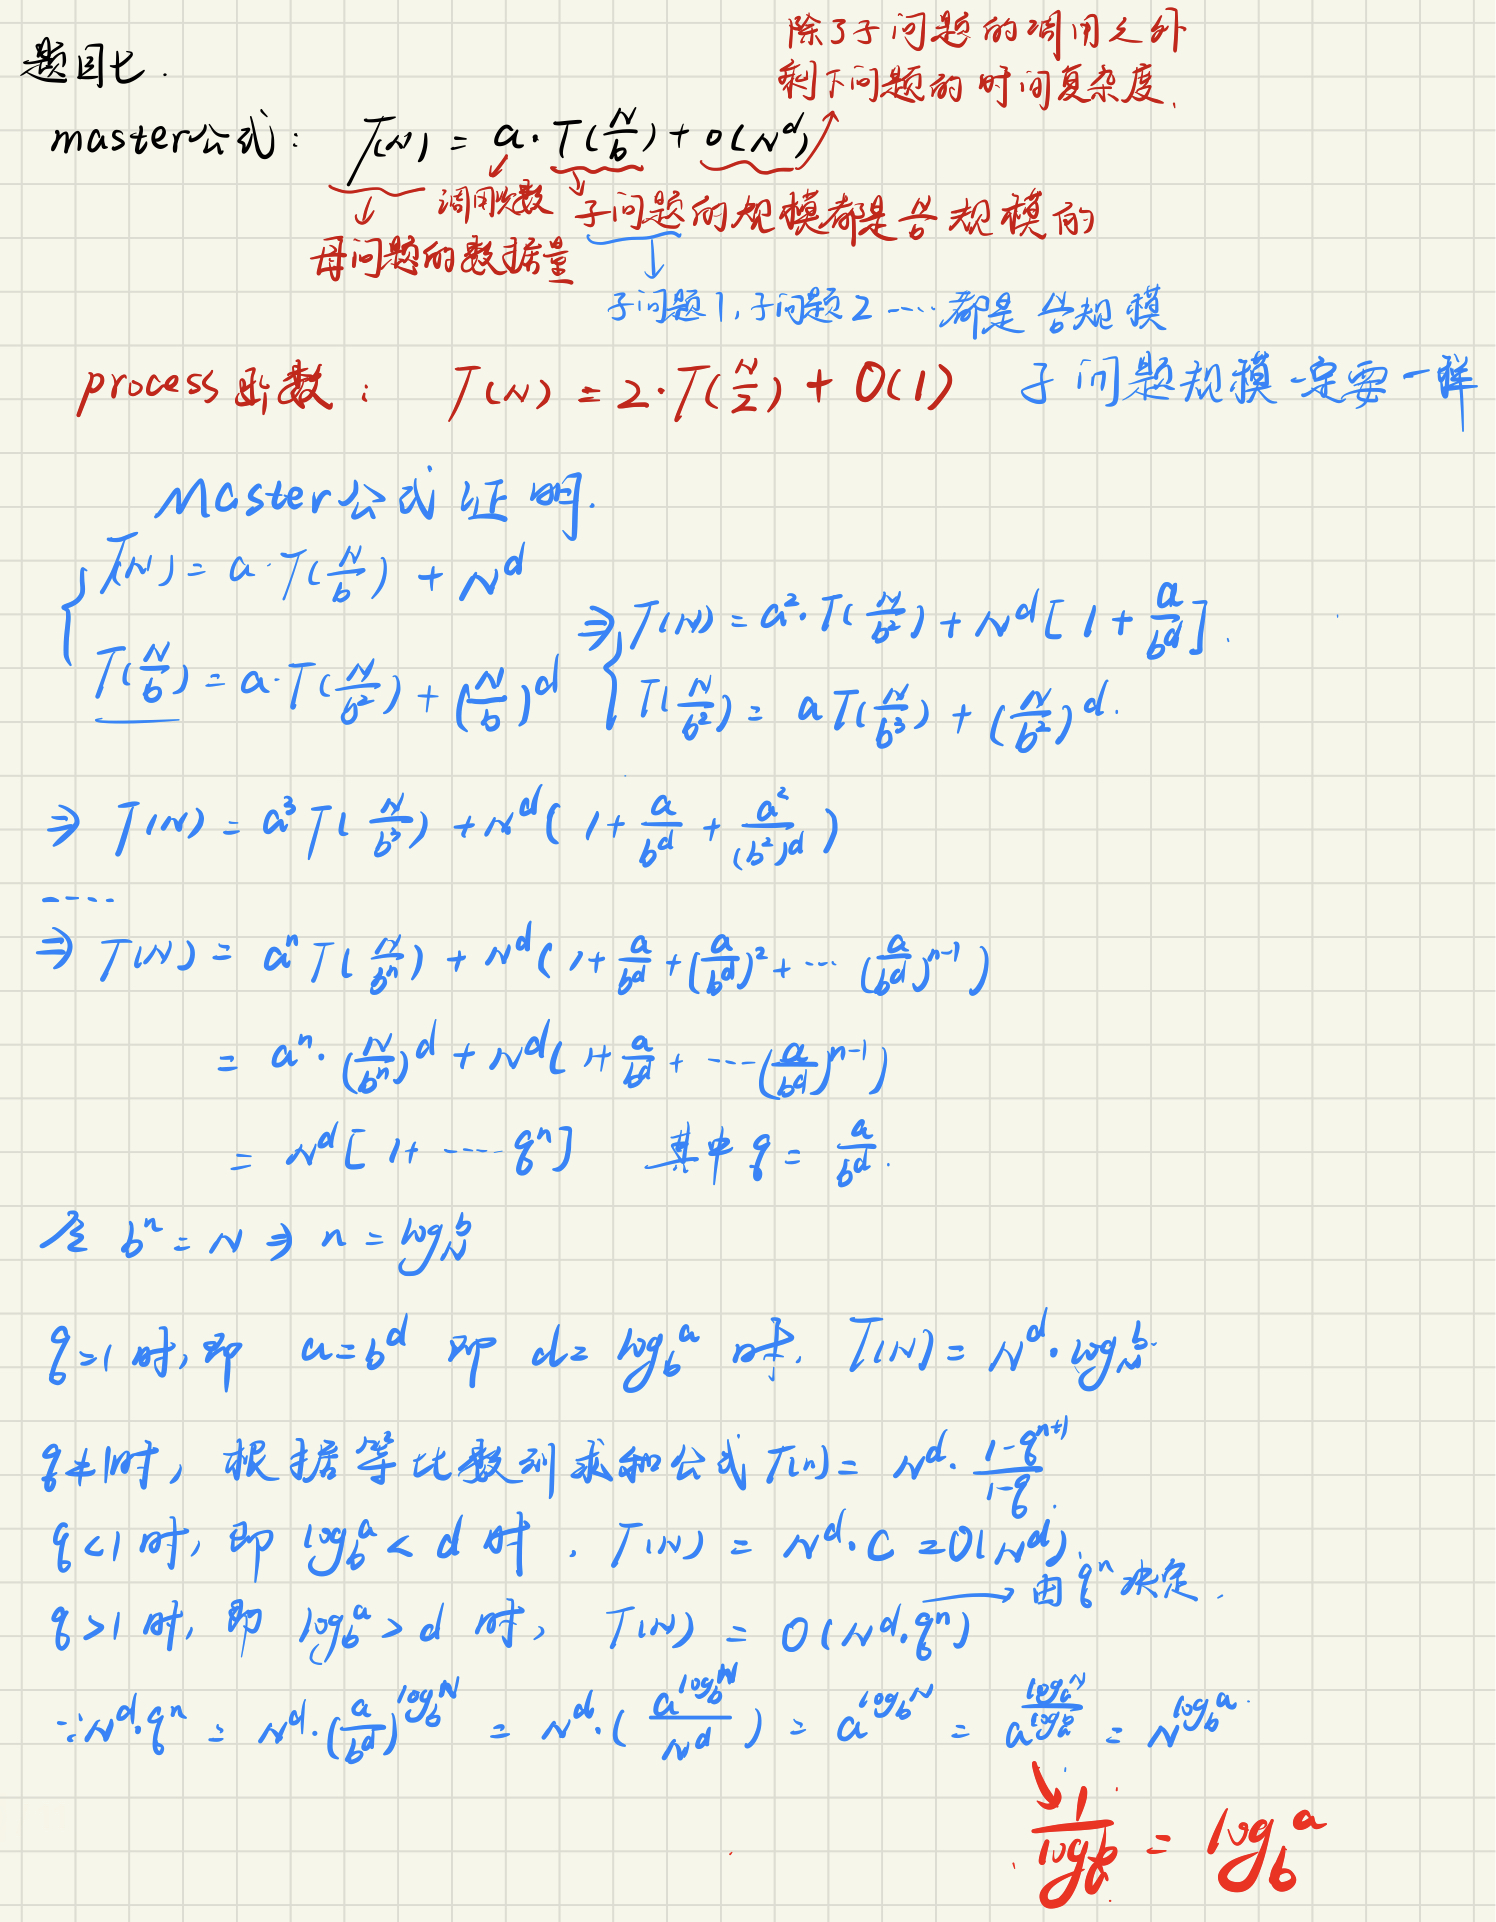 除了子问题的调用之外
剩下问题的时间复杂度.
题目七.
master公式: T(N) = a·T(N/b) + O(N^d)
调用次数 子问题的规模都是 N/b 规模的
母问题的数据量
子问题1,子问题2 ---- 都是 N/b 规模
process函数: T(N) = 2·T(N/2) + O(1) 子问题规模一定要一样
Master公式证明.
T(N) = a·T(N/b) + N^d
⇒ T(N) = a^2·T(N/b^2) + N^d[1 + a/b^d].
T(N/b) = a·T(N/b^2) + (N/b)^d
T(N/b^2) = aT(N/b^3) + (N/b^2)^d.
⇒ T(N) = a^3T(N/b^3) + N^d(1 + a/b^d + a^2/(b^2)^d)
-----
⇒ T(N) = a^nT(N/b^n) + N^d(1 + a/b^d + (a/b^d)^2 + ··· (a/b^d)^{n-1})
= a^n·(N/b^n)^d + N^d(1 + a/b^d + ----(a/b^d)^{n-1})
= N^d[1+ ---- q^n] 其中 q = a/b^d.
令 b^n = N ⇒ n = log_N^b
q=1时,即 a=b^d 即 d=log_b^a 时. T(N) = N^d·log_N^b.
q≠1时, 根据等比数列求和公式 T(n) = N^d·(1-q^{n+1})/(1-q).
q<1时, 即 log_b^a < d 时. T(N) = N^d·C = O(N^d)
→ 由q^n决定.
q>1时, 即 log_b^a > d 时, T(N) = O(N^d·q^n)
∵N^d·q^n = N^d·(a/b^d)^{log_b^N} = N^d·(a^{log_b^N}/N^d) = a^{log_b^N} = a^{log_a^N/log_a^b} = N^{log_b^a}.
1/log_a^b = log_b^a